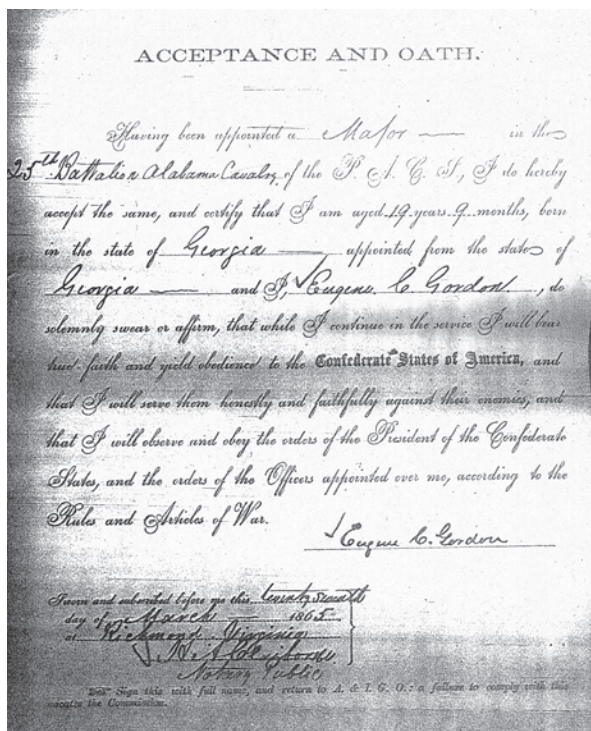 ACCEPTANCE AND OATH.
Having been appointed a Major in the
25th Battalion Alabama Cavalry of the P. A. C. S., I do hereby
accept the same, and certify that I am aged 19 years 9 months, born
in the state of Georgia appointed from the state of
Georgia and I, Eugene C Gordon, do
solemnly swear or affirm, that while I continue in the service I will bear
true faith and yield obedience to the Confederate States of America, and
that I will serve them honestly and faithfully against their enemies, and
that I will observe and obey the orders of the President of the Confederate
States, and the orders of the Officers appointed over me, according to the
Rules and Articles of War.
Eugene C. Gordon
Sworn and subscribed before me this twenty seventh
day of March 1865
at Richmond Virginia
Notary Public
Sign this with full name, and return to A. & I. G. O.: a failure to comply with this
vacates the Commission.